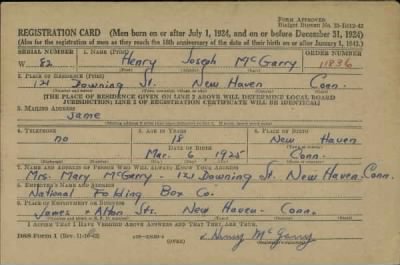 Form Approved
Budget Bureau No. 33-R012-42
REGISTRATION CARD (Men born on or after July 1, 1924, and on or before December 31, 1924)
(Also for the registration of men as they reach the 18th anniversary of the date of their birth on or after January 1, 1943.)
SERIAL NUMBER 1. NAME (Print) ORDER NUMBER
W 82 Henry Joseph McGarry 11836
2. PLACE OF RESIDENCE (Print)
121 Downing St. New Haven Conn.
[THE PLACE OF RESIDENCE GIVEN ON LINE 2 ABOVE WILL DETERMINE LOCAL BOARD
JURISDICTION; LINE 2 OF REGISTRATION CERTIFICATE WILL BE IDENTICAL]
3. MAILING ADDRESS
Same
4. TELEPHONE 5. AGE IN YEARS 6. PLACE OF BIRTH
no 18 New Haven
DATE OF BIRTH
Mar. 6 1925 Conn.
7. NAME AND ADDRESS OF PERSON WHO WILL ALWAYS KNOW YOUR ADDRESS
Mrs. Mary McGarry - 121 Downing St. New Haven-Conn.
8. EMPLOYER'S NAME AND ADDRESS
National Folding Box Co.
9. PLACE OF EMPLOYMENT OR BUSINESS
James + Alton Sts. New Haven - Conn.
I AFFIRM THAT I HAVE VERIFIED ABOVE ANSWERS AND THAT THEY ARE TRUE.
DSS Form 1 (Rev. 11-16-42) (OVER) Henry McGarry